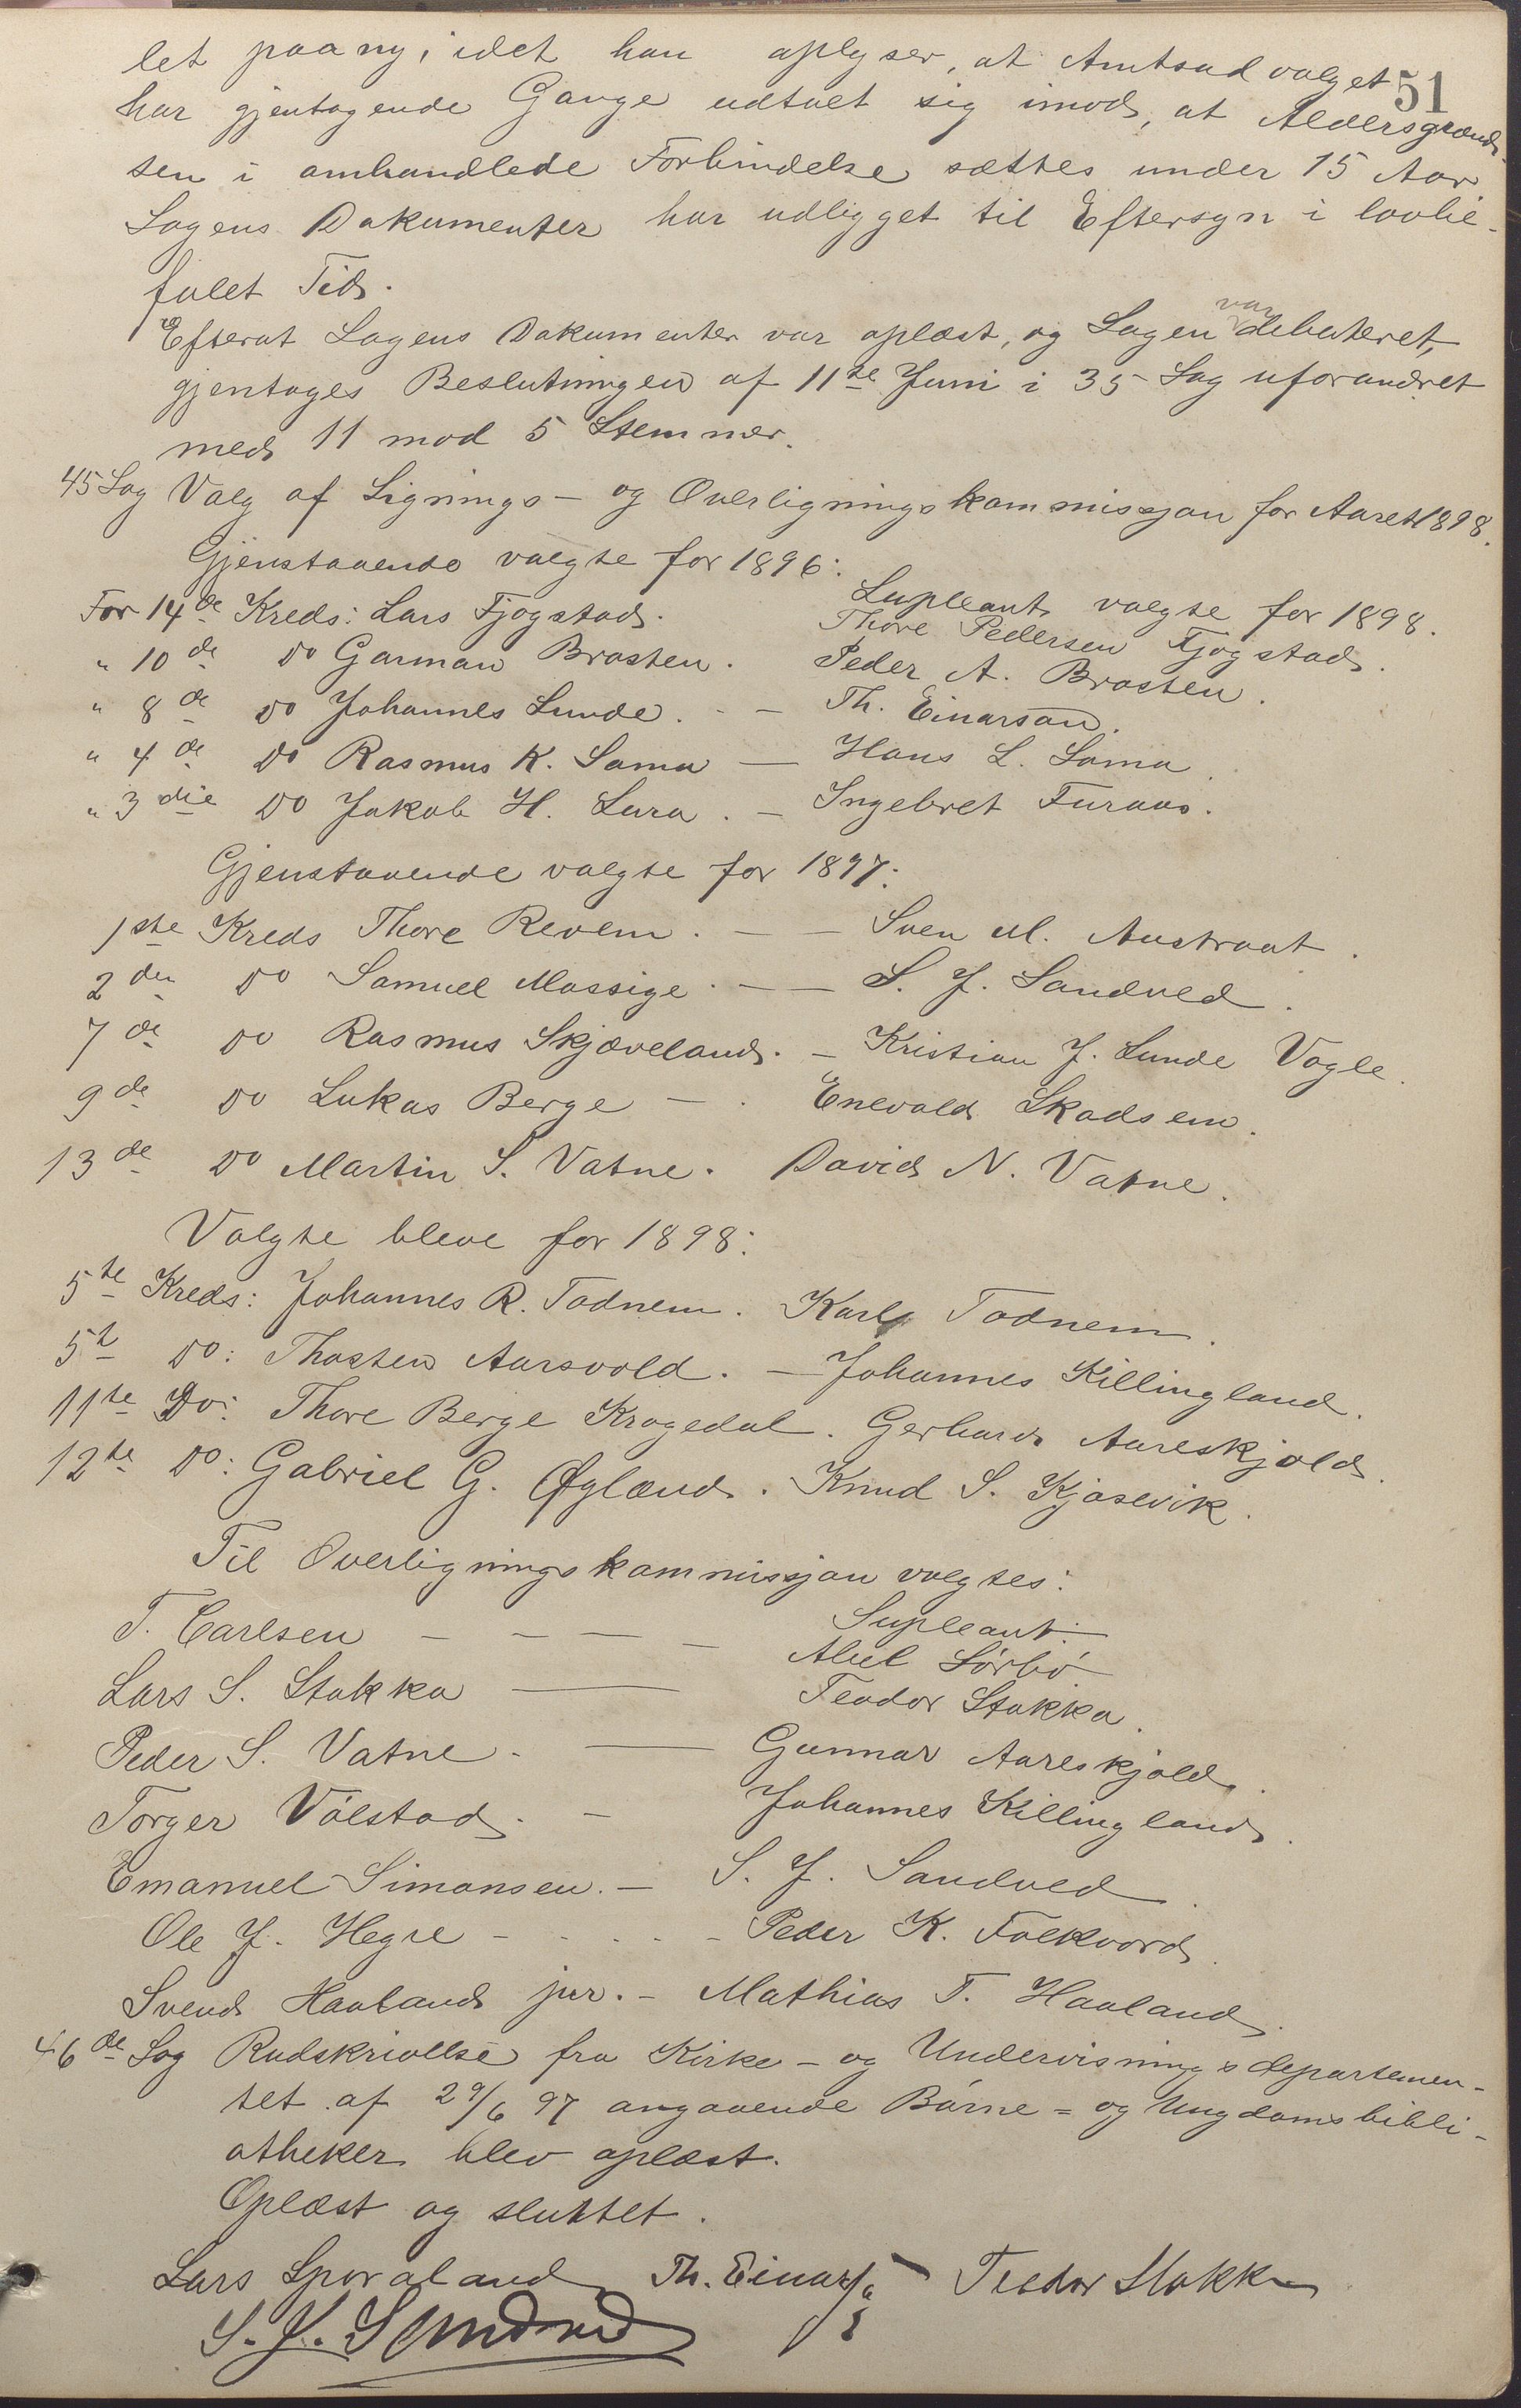 51
let paany, idet han oplyser, at Amtsudvalget
har gjentagende Gange udtalt sig imod, at Aldersgrænd-
sen i omhandlede Forbindelse sættes under 15 Aar.
Sagens Dokumenter har udligget til Eftersyn i lovbe-
falet Tid.
Efterat Sagens Dokumenter var oplæst, og Sagen var debateret,
gjentages Beslutningen af 11te Juni i 35 Sag uforandret
med 11 mod 5 Stemmer.
45 Sag Valg af Lignings- og Overligningskommissjon for Aaret 1898.
Gjenstaaende valgte for 1896:
Supleant valgte for 1898.
For 14de Kreds: Lars Fjogstad. Thore Pedersen Fjogstad.
" 10de Do Garman Brasten. Peder A. Brasten.
" 8de Do Johannes Lunde. - - Th. Einarson.
" 4de Do Rasmus K. Soma — Hans L. Soma.
" 3die Do Jakob H. Lura. - Ingebret Furaas.
Gjenstaaende valgte for 1897:
1ste Kreds Thore Revem. - - Sven M. Austraat.
2den Do Samuel Massige. - - S. J. Sandved.
7de Do Rasmus Skjæveland. - Kristian J. Lunde Vagle.
9de Do Lukas Berge - . Enevald Skadsem.
13de Do Martin S. Vatne. David N. Vatne.
Valgte bleve for 1898:
5te Kreds: Johannes R. Todnem. Karl Todnem.
5te Do: Thosten Aarsvold. - Johannes Killingland.
11te Do: Thore Berge Kragedal. Gerhard Aareskjold.
12te Do: Gabriel G. Øgland. Knud S. Kjosevik.
Til Overligningskommissjon valgtes:
Supleant:
T. Carlsen - - - - Abel Sørbø
Lars S. Stokka — Teodor Stokka.
Peder S. Vatne. — Gunnar Aareskjold.
Torger Vølstad. - Johannes Killingland.
Emanuel Simonsen. - S. J. Sandved.
Ole J. Hegre - . . . - Peder K. Folkvord.
Svend Haaland jnr. - Mathias T. Haaland.
46de Sag Rudskrivelse fra Kirke- og Undervisningsdepartemen-
tet af 29/6 97 angaaende Børne- og Ungdomsbibli-
otheker blev oplæst.
Oplæst og sluttet.
Lars Sporaland Th. Einars Teodor Stokka
S. J. Sandved